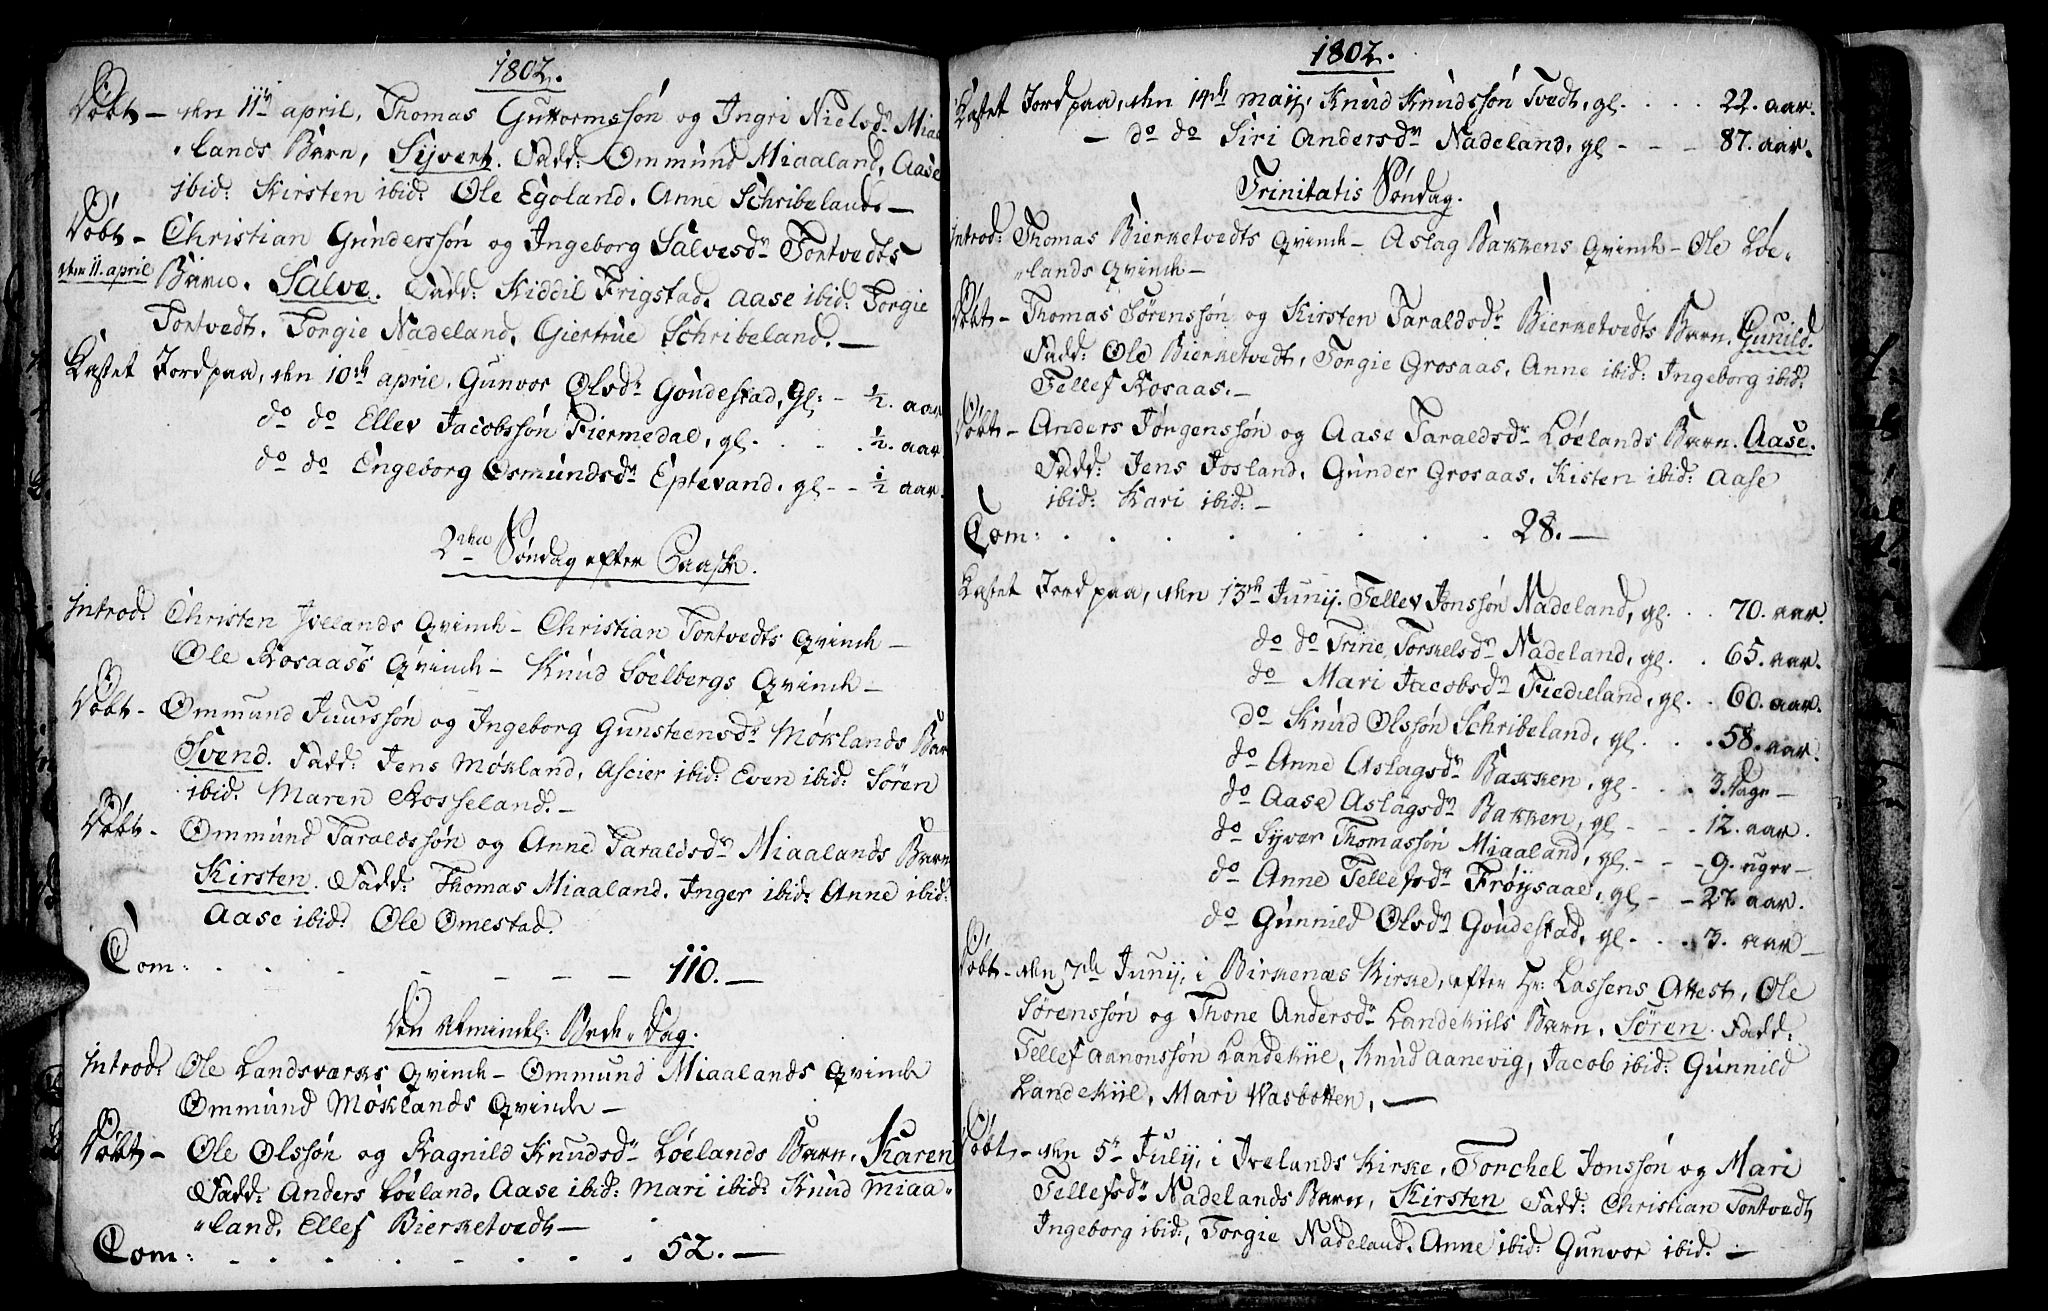 1802.
Döbt – den 11te april, Thomas Guttormssön og Ingri Nielsdr Miaa
"lands Barn, Syvert. Fadd: Ommund Miaaland, Aase
ibid: Kirsten ibid: Ole Egoland. Anne Schribeland. –
Döbt – Christian Gunderssön og Ingeborg Salvesdr Tortvedts
den 11. april Barn. Salve. Fadd: Kiddil Frigstad. Aase ibid: Torgie
Tortvedt. Torgie Nadeland. Giertrue Schribeland. –
Kastet Jord paa, den 10de april. Gunvor Olsdr Goudestad, gl: – ½. aar
do do Ellev Jacobssön Fiermedal, gl. . . ½. aar
do do Engeborg Osmundsdr Eptevand. gl – – ½ aar.
2den Söndag efter Paaske.
Introd: Christen Ivelands Qvinde – Christian Tortvedts Qvinde –
Ole Rosaass Qvinde – Knud Soelbergs Qvinde –
Döbt – Ommund Juurssön og Ingeborg Gunsteensdr Möklands Bar
Svend. Fadd: Jens Mökland, Ascier ibid: Even ibid: Sören
ibid. Maren Rosseland. –
Döbt – Ommund Taraldssön og Anne Taraldsdr Miaalands Barn
Kirsten. Fadd: Thomas Miaaland. Inger ibid: Anne ibid:
Aase ibid: Ole Omestad.
Com: . . . – – – – 110. –
Den Almindel: Bede-Dag.
Introd: Ole Landsværks Qvinde – Ommund Miaalands Qvinde
Ommund Möklands Qvinde –
Döbt – Ole Olssön og Ragnild Knudsdr Löelands Barn. Karen
Fadd: Anders Löeland. Aase ibid: Mari ibid: Knud Miaa"
"land. Ellef Bierketvedt –
Com: . . . . . . . 52. –
1802.
Kastet Jord paa, den 14de maij, Knud Knudssön Tvedt, gl. . . . 22. aar.
– do do Siri Andersdr Nadeland, gl – – – 87. aar.
Trinitatis Söndag.
Introd: Thomas Bierketvedts Qvinde – Aslag Bakkens Qvinde – Ole Löe"
"lands Qvinde –
Döbt – Thomas Sörenssön og Kirsten Taraldsdr Bierketvedts Barn. Gunild.
Fadd: Ole Bierketvedt, Torgie Grosaas, Anne ibid: Ingeborg ibid:
Tellef Rosaas. –
Döbt – Anders Jörgenssön og Aase Taraldsdr Löelands Barn. Aase.
Fadd: Jens Josland, Gunder Grosaas, Kisten ibid: Aase
ibid: Kari ibid: –
Com: . . . . . . . . 28. –
Kastet Jord paa, den 13de Junij. Tellev Jonssön Nadeland, gl. . . 70. aar.
do do Trine Torkelsdr Nadeland, gl. . 65. aar.
do Mari Jacobsdr Fiedieland, gl. . 60. aar.
do Knud Olssön Schribeland, gl. . . 58. aar.
do Anne Aslagsdr Bakken, gl. . . 3. Dage –
do Aase Aslagsdr Bakken, gl – – – 12. aar.
do Syver Thomassön Miaaland, gl. – – 9. uger –
do Anne Tellefsdr Fröysaae, gl – – 27 aar.
do Gunnild Olsdr Goudestad, gl. . . . 3. aar –
Döbt – den 7de Junij, i Birkenæs Kirke, efter Hr: Lassens Attest, Ole
Sörenssön og Thone Andersdr Landekiils Barn. Sören. Fadd:
Tellef Aanonssön Landekiil, Knud Aanevig, Jacob ibid: Gunnild
Landekiil, Mari Wasbotten. –
Döbt – den 5te Julij, i Ivelands Kirke, Torchel Jonssön og Mari
Tellefsdr Nadelands Barn, Kirsten Fadd: Christian Tortvedt
Ingeborg ibid:, Torgie Nadeland. Anne ibid: Gunvor ibid: –